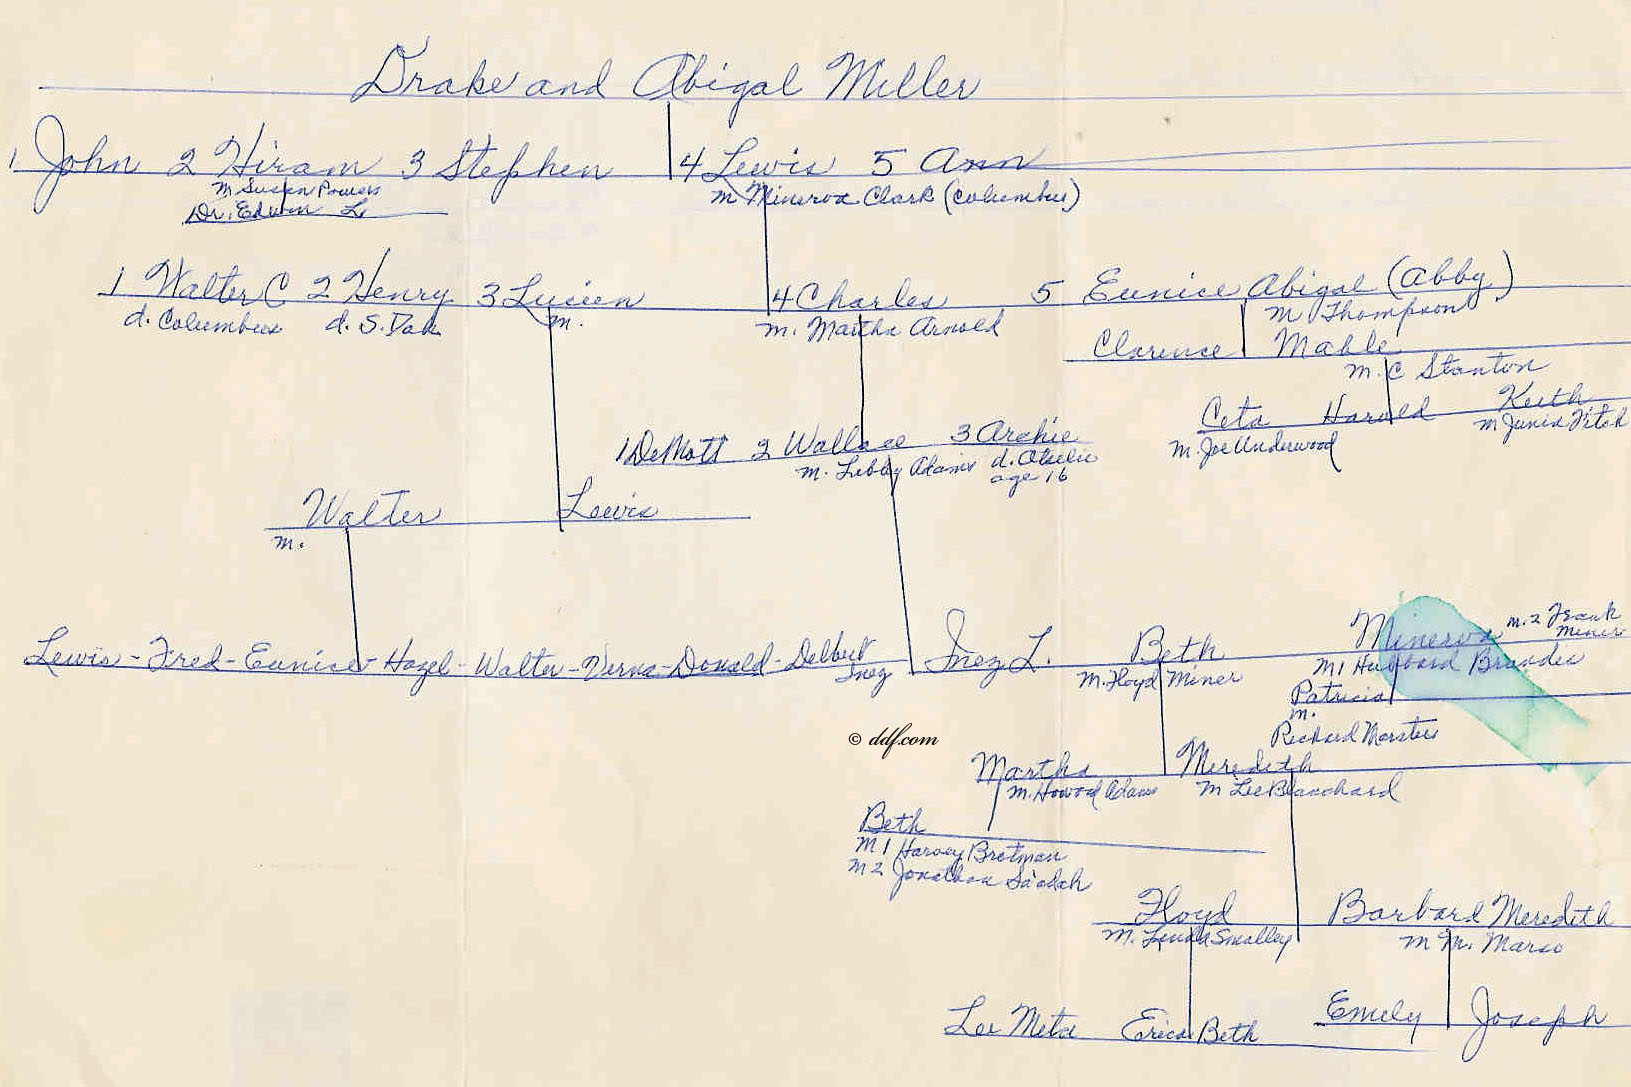 Drake and Abigal Miller
1 John 2 Hiram 3 Stephen 4 Lewis 5 Ann
M Susen Powers
m Minerva Clark (Columbus)
Dr. Edwin L
1 Walter C 2 Henry 3 Lucien 4 Charles 5 Eunice Abigal (Abby)
d. Columbus d. S. Dak m. m. Martha Arnold M Thompson
Clarence Mable
m. C Stanton
Ceta Harold Keith
m. Joe Underwood m Junia Fitch
1 DeMott 2 Wallace 3 Archie
m. Libby Adams d.
age 16
Walter Lewis
m.
Minerva m. 2 Frank Miner
Lewis - Fred - Eunice - Hazel - Walter - Verna - Donald - Delbert Inez
Inez L. Beth
M. Floyd Miner M1 Hubbard Brandes
Patricia
m.
Richard Marsters
© ddf.com
Martha Meredith
m. Howard Adams m Lee Blanchard
Beth
M 1 Harvey Bretman
M 2 Jonathan
Floyd Barbara Meredith
m. Linda Smalley m M. Marso
Lee Meta Erica Beth Emily Joseph